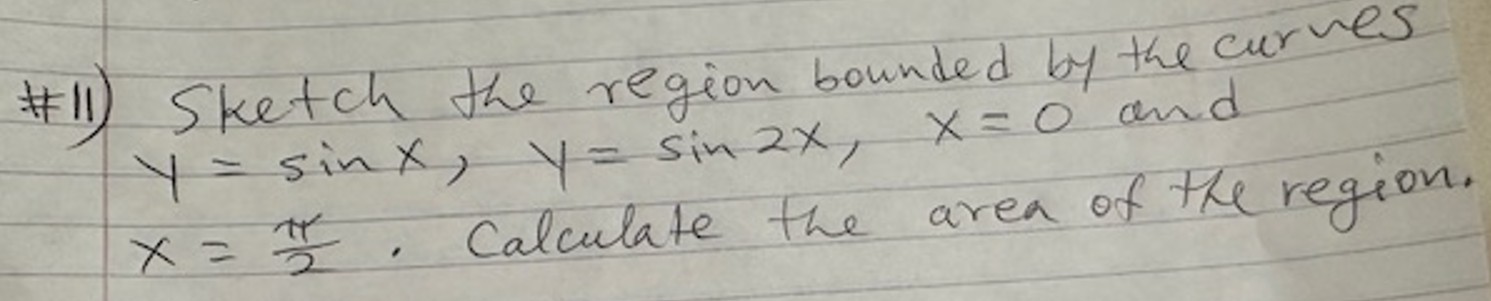 #11) Sketch the region bounded by the curves
y = sin x, y = sin 2x, x = 0 and
x = π/2. Calculate the area of the region.